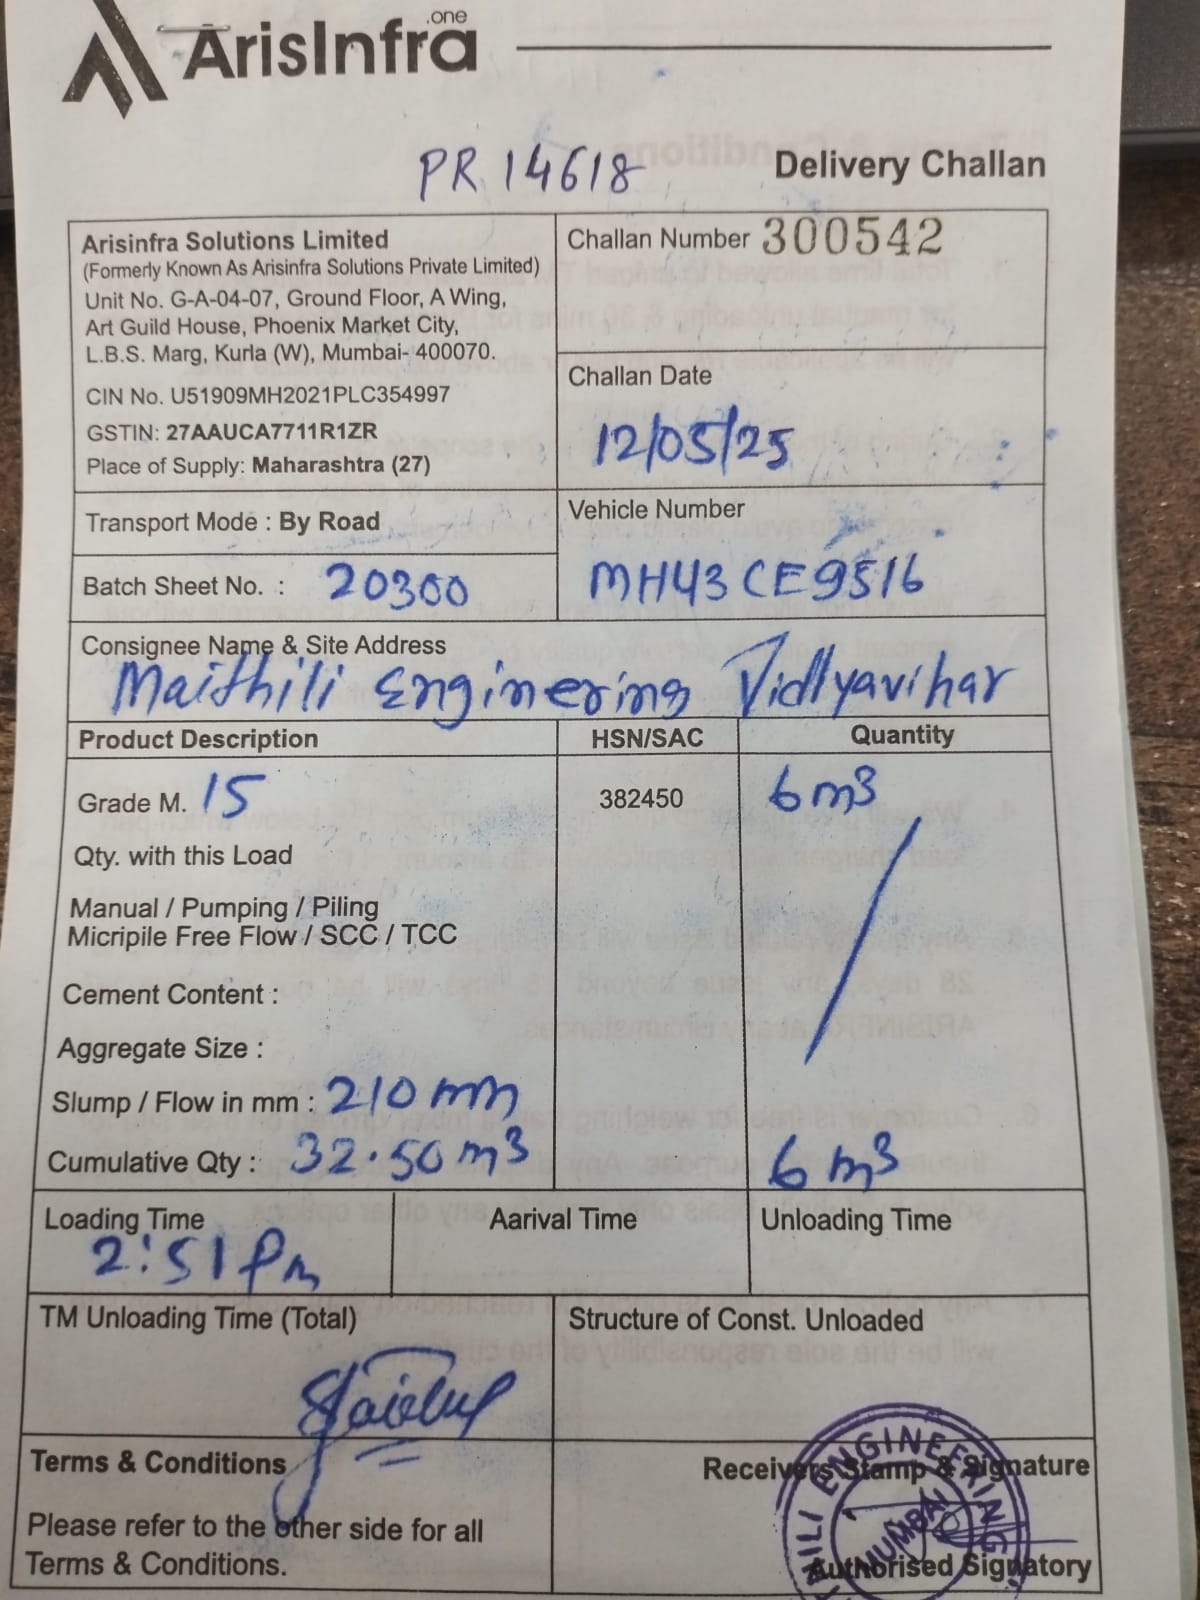 .one
ArisInfra
PR 14618
Delivery Challan
Arisinfra Solutions Limited
(Formerly Known As Arisinfra Solutions Private Limited)
Unit No. G-A-04-07, Ground Floor, A Wing,
Art Guild House, Phoenix Market City,
L.B.S. Marg, Kurla (W), Mumbai- 400070.
CIN No. U51909MH2021PLC354997
GSTIN: 27AAUCA7711R1ZR
Place of Supply: Maharashtra (27)
Challan Number 300542
Challan Date
12/05/25
Transport Mode : By Road
Vehicle Number
MH43 CE9516
Batch Sheet No. : 20300
Consignee Name & Site Address
Maithili Enginering Vidhyavihar
Product Description HSN/SAC Quantity
Grade M. 15 382450 6 m3
Qty. with this Load
Manual / Pumping / Piling
Micripile Free Flow / SCC / TCC
Cement Content :
Aggregate Size :
Slump / Flow in mm : 210 mm
Cumulative Qty : 32.50 m3 6 m3
Loading Time Aarival Time Unloading Time
2:51 Pm
TM Unloading Time (Total) Structure of Const. Unloaded
Terms & Conditions
Please refer to the other side for all
Terms & Conditions.
Receivers Stamp & Signature
ENGINEERING
MUMBAI
Authorised Signatory